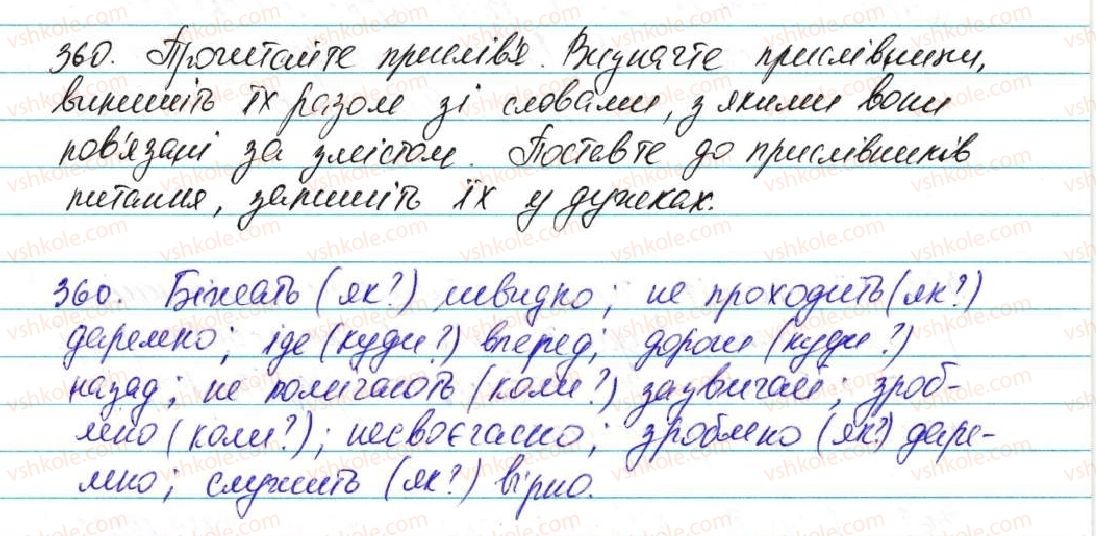 360. Прочитайте прислів'я. Визначте прислівники,
випишіть їх разом зі словами, з якими вони
пов'язані за змістом. Поставте до прислівників
питання, запишіть їх у дужках.
360. Біжать (як?) швидко; не проходить (як?)
даремно; іде (куди?) вперед; дороги (куди?)
назад; не помічають (коли?) зазвичай; зроб-
лено (коли?); несвоєчасно; зроблено (як?) даре-
мно; служить (як?) вірно.